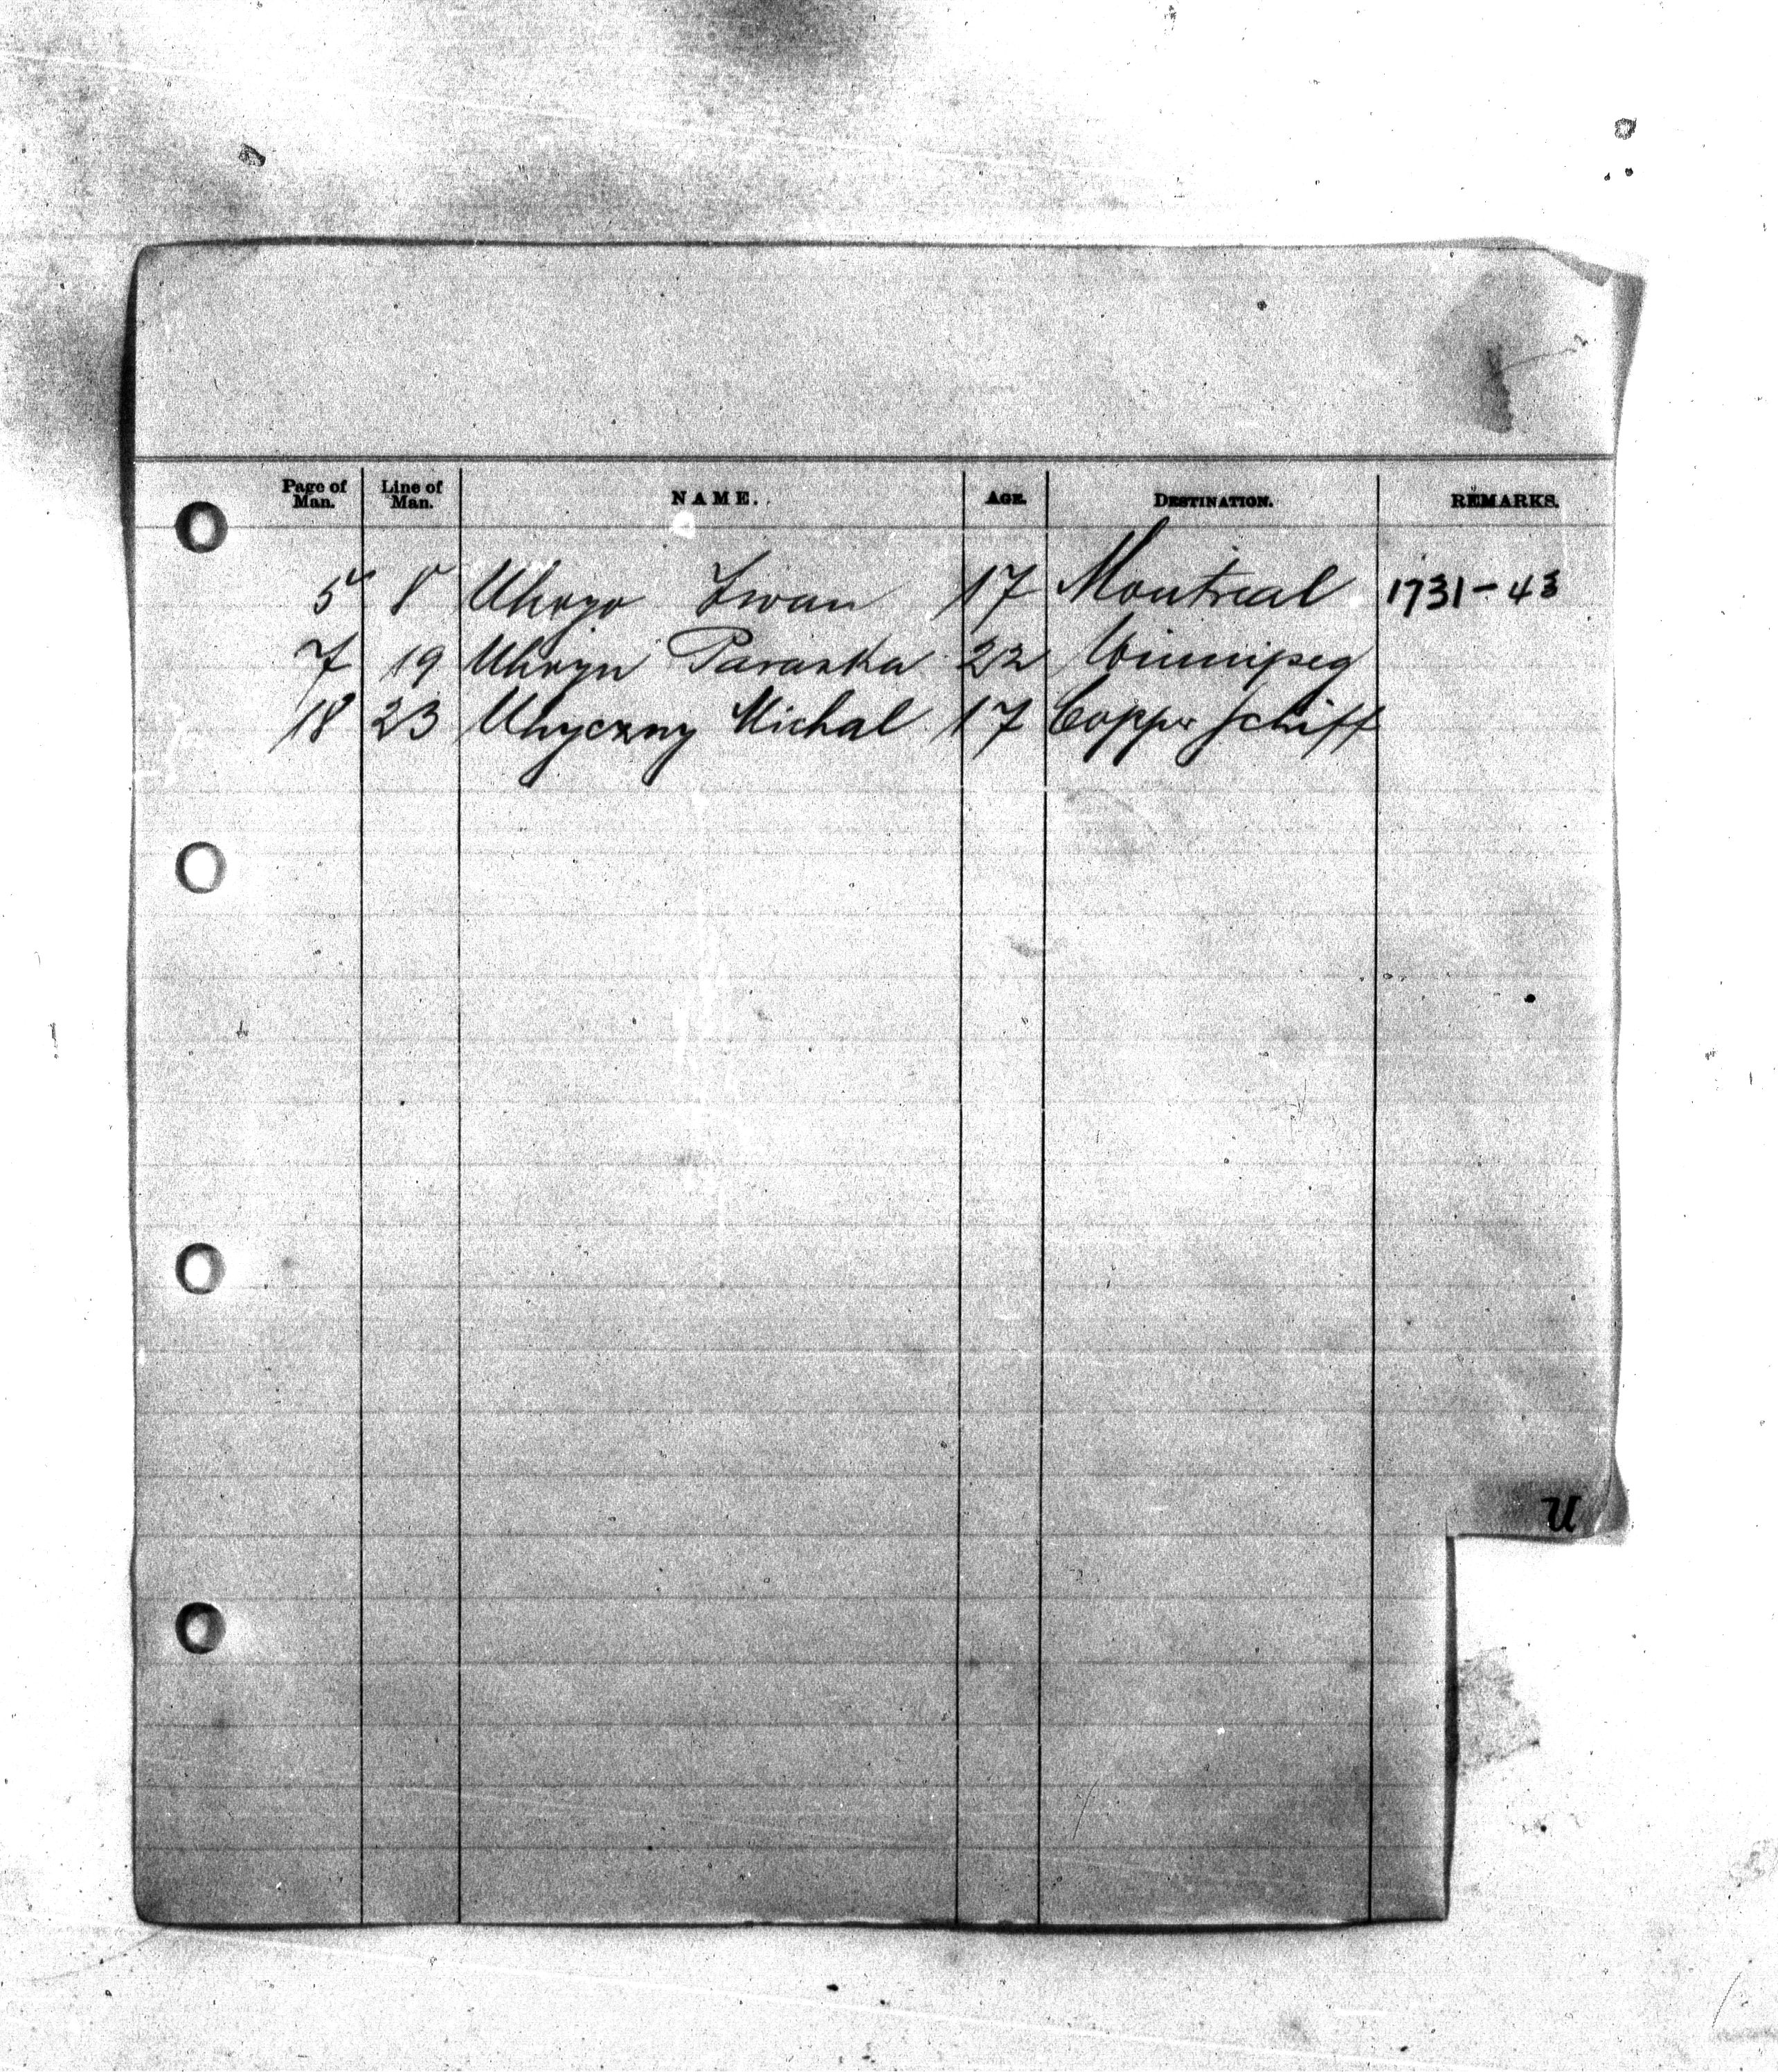 Page of Man. Line of Man. NAME. AGE. DESTINATION. REMARKS.
5 8 Iwan 17 Montreal 1731-43
7 19 Uhryn Paraska 22 Winnipeg
18 23 Uhyczny Michal 17 Copper Schiff
U